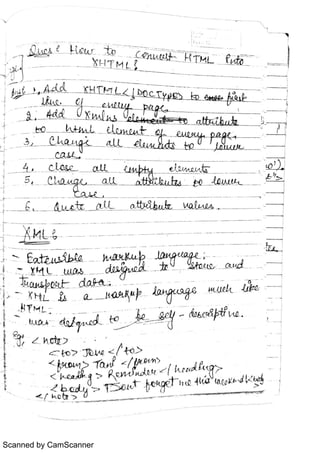 Ques: How to convert HTML into
XHTML?
1. Add XHTML <!DOCTYPE> to first
line of every page.
2. Add xmlns attribute
to html element of every page.
3, Change all elements to lower
case.
4. close all empty elements
5, Change all attributes to lower
case.
6. Quote all attribute values.
XML:
- Extensible markup language.
- XML was designed to store and
transport data.
- XML is a markup language much like
HTML.
- was designed to be self-descriptive.
Eg: <note>
<to> Tove </to>
<from> Jani </from>
<heading> Reminder </heading>
<body> Don't forget me this weekend
</note>
Scanned by CamScanner